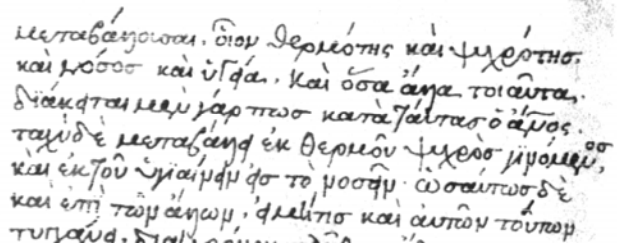 μεταβάλλουσαι. οἷον θερμότης καὶ ψυχρότης.
καὶ νόσος καὶ ὑγεία. καὶ ὅσα ἄλλα τοιαῦτα.
διάκειται μὲν γάρ πως κατὰ ταύτας ὁ ἄνος.
ταχὺ δὲ μεταβάλλει ἐκ θερμοῦ ψυχρὸς γινόμενος,
καὶ ἐκ τοῦ ὑγιαίνειν εἰς τὸ νοσεῖν. ὡσαύτως δὲ
καὶ ἐπὶ τῶν ἄλλων. εἰ μή τις καὶ αὐτῶν τούτων
τυγχάνει διὰ χρόνου πλῆθος